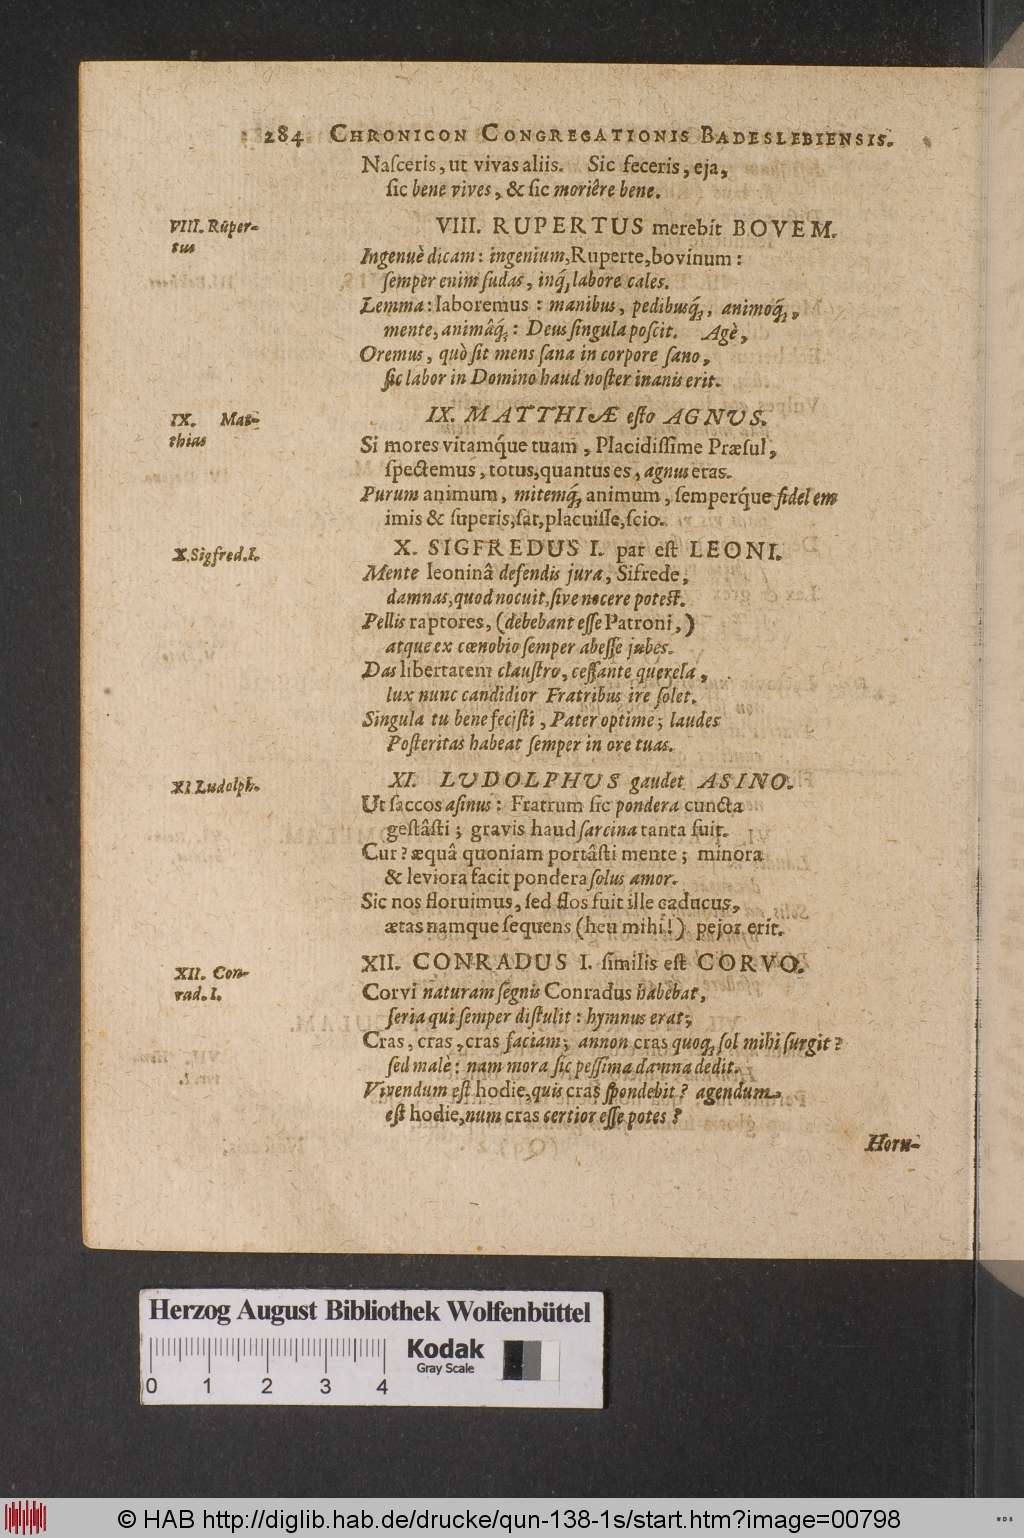 284 CHRONICON CONGREGATIONIS BADESLEBIENSIS.
Naſceris, ut vivas aliis. Sic feceris, eja,
ſic bene vives, & ſic moriêre bene.
VIII. Ruper-
tus
VIII. RUPERTUS merebit BOVEM.
Ingenuè dicam: ingenium, Ruperte, bovinum:
ſemper enim ſudas, inq́; labore cales.
Lemma: laboremus: manibus, pedibusq́;, animoq́;,
mente, animâq́;: Deus ſingula poſcit. Agè,
Oremus, quò ſit mens ſana in corpore ſano,
ſic labor in Domino haud noſter inanis erit.
IX. Mat-
thias
IX. MATTHIÆ eſto AGNVS.
Si mores vitamq́ue tuam, Placidiſſime Præſul,
ſpectemus, totus, quantus es, agnus eras.
Purum animum, mitemq́; animum, ſemperq́ue fidelem
imis & ſuperis, ſat, placuiſſe, ſcio.
X. Sigfred. I.
X. SIGFREDUS I. par eſt LEONI.
Mente leoninâ defendis jura, Sifrede,
damnas, quod nocuit, ſive nocere poteſt.
Pellis raptores, (debebant eſſe Patroni,)
atque ex cœnobio ſemper abeſſe jubes.
Das libertatem clauſtro, ceſſante querela,
lux nunc candidior Fratribus ire ſolet.
Singula tu bene feciſti, Pater optime; laudes
Poſteritas habeat ſemper in ore tuas.
XI Ludolph.
XI. LVDOLPHVS gaudet ASINO.
Ut ſaccos aſinus: Fratrum ſic pondera cuncta
geſtâſti; gravis haud ſarcina tanta fuit.
Cur? æquâ quoniam portâſti mente; minora
& leviora facit pondera ſolus amor.
Sic nos floruimus, ſed flos fuit ille caducus,
ætas namque ſequens (heu mihi!) pejor erit.
XII. Con-
rad. I.
XII. CONRADUS I. ſimilis eſt CORVO.
Corvi naturam ſegnis Conradus habebat,
ſeria qui ſemper diſtulit: hymnus erat;
Cras, cras, cras faciam; annon cras quoq; ſol mihi ſurgit?
ſed malè: nam mora ſic peſſima damna dedit.
Vivendum eſt hodie, quis cras ſpondebit? agendum
eſt hodie, num cras certior eſſe potes?
Horu-
Herzog August Bibliothek Wolfenbüttel
Kodak
Gray Scale
0 1 2 3 4
© HAB http://diglib.hab.de/drucke/qun-138-1s/start.htm?image=00798